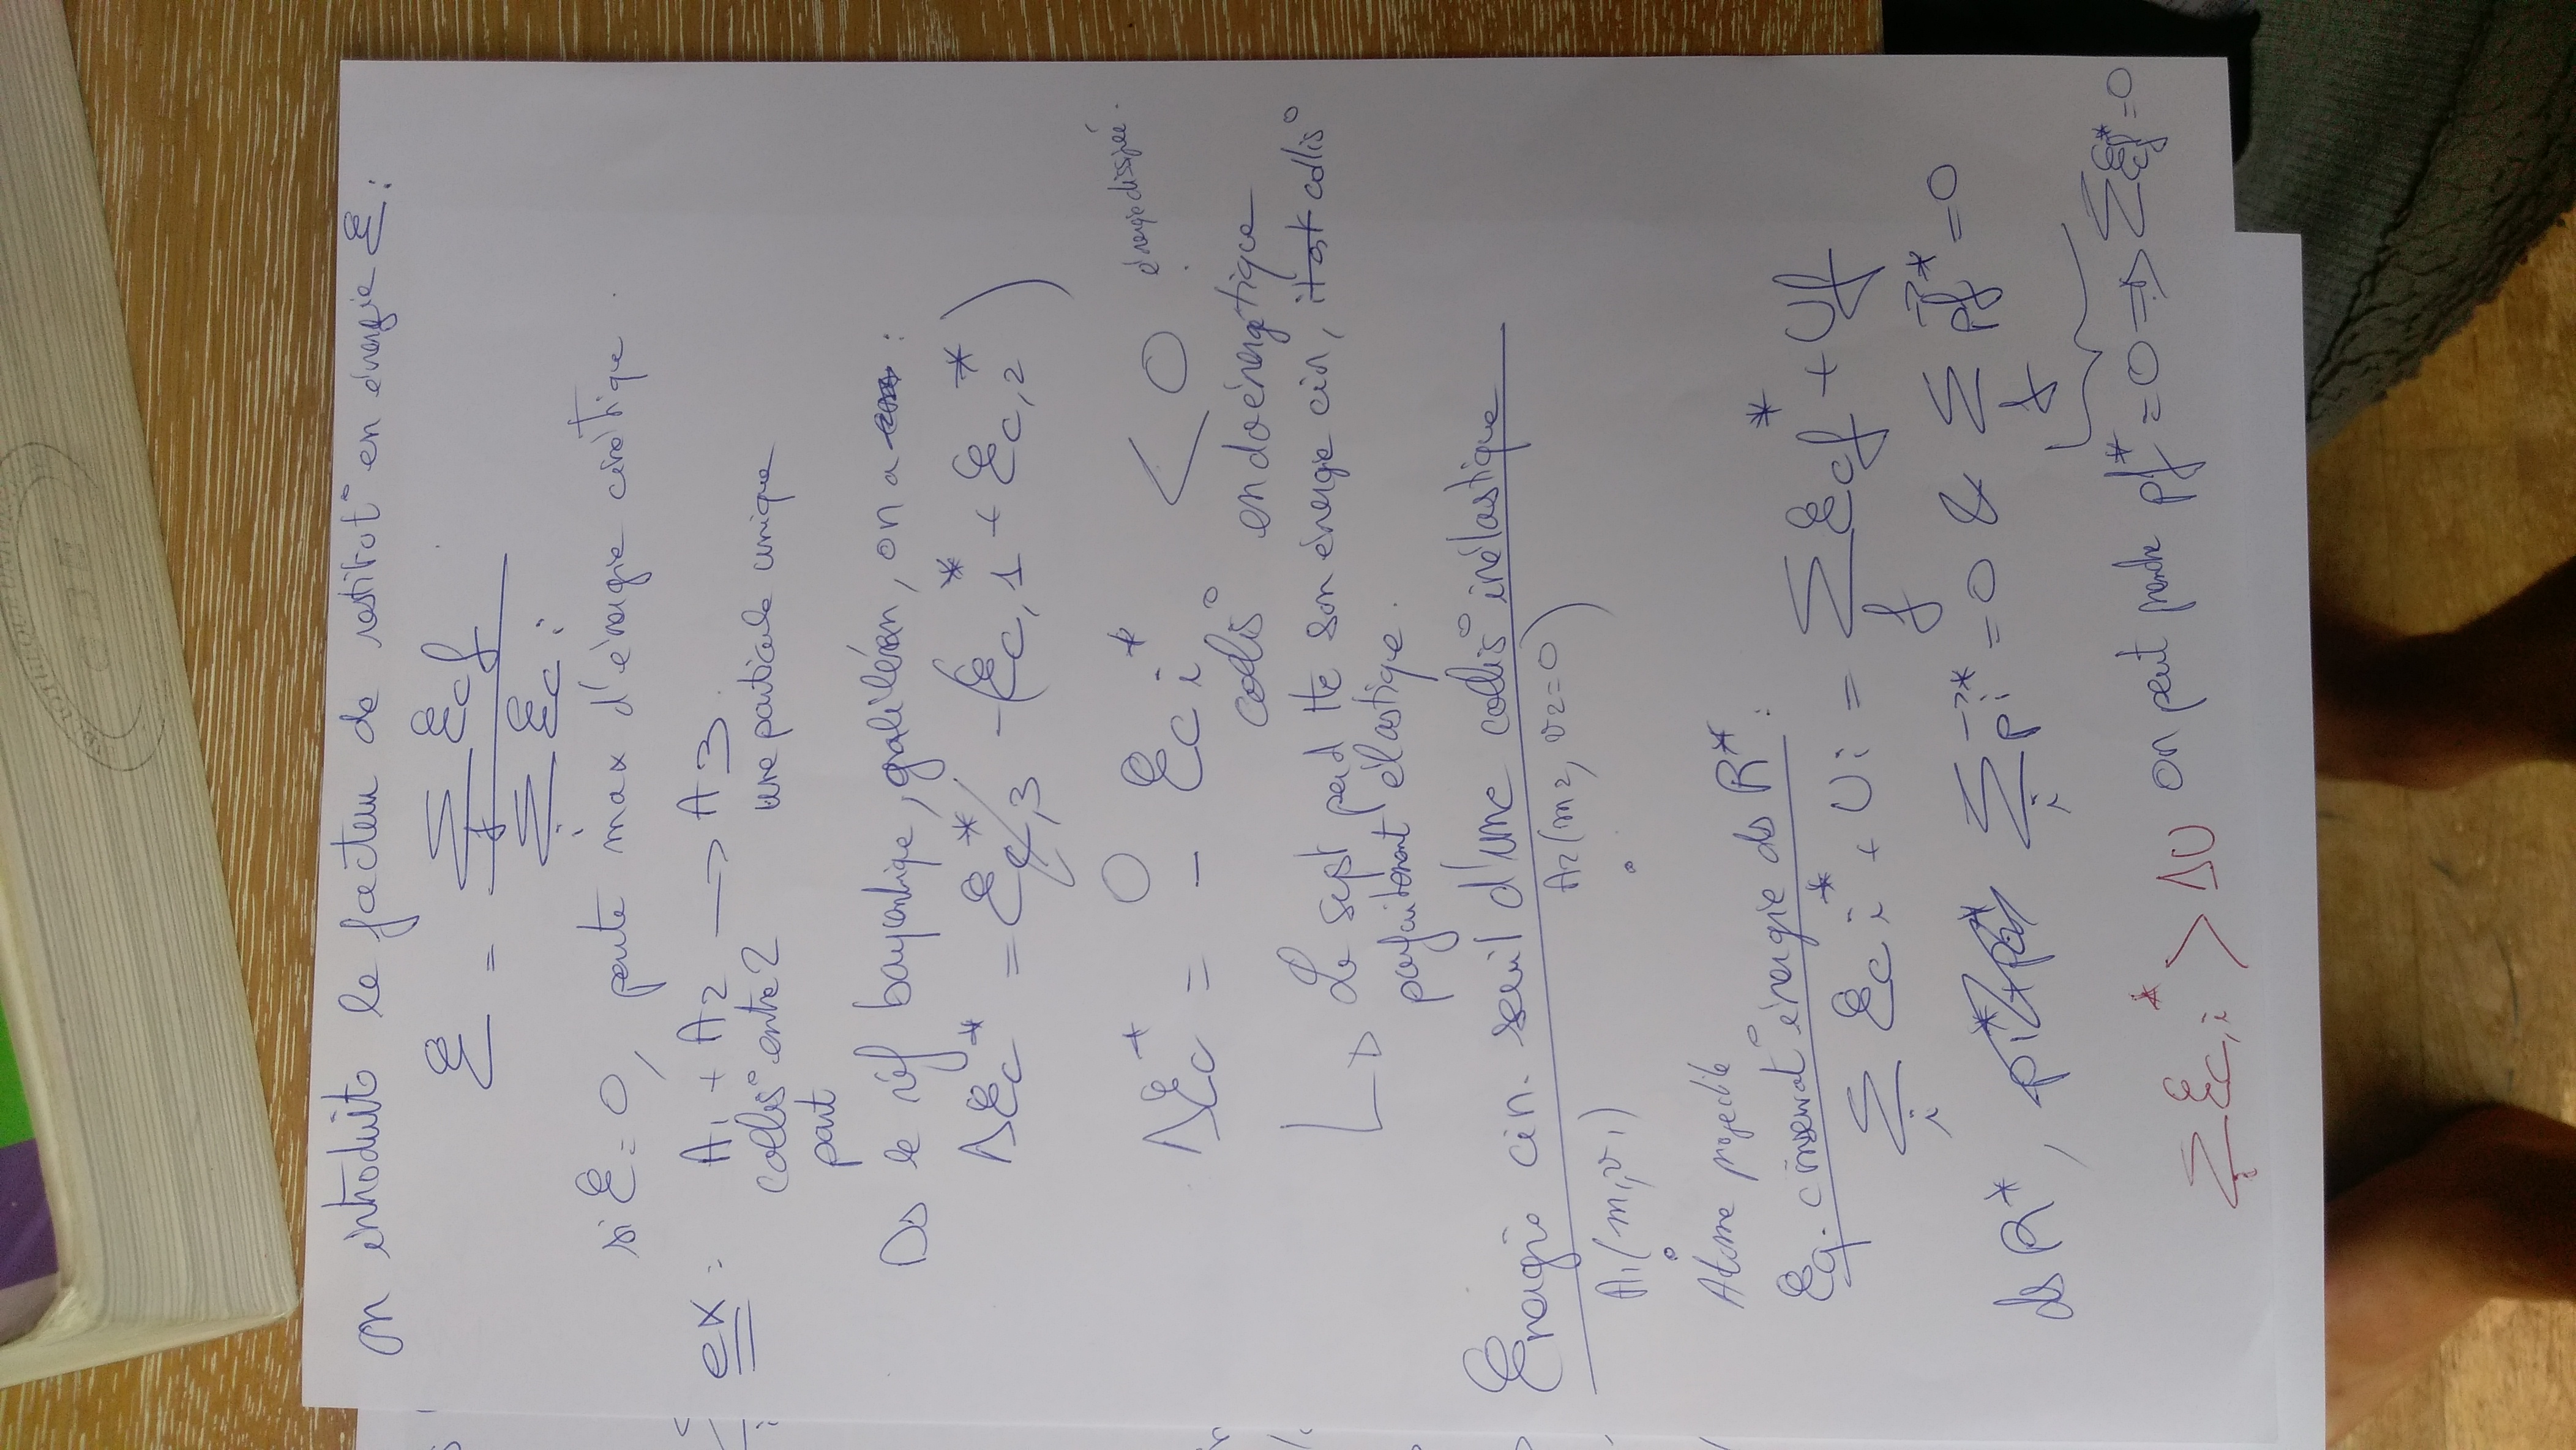 on introduit le facteur de restitut° en énergie E :
E = Σf Ecf / Σi Eci
si E = 0, perte max d'énergie cinétique.
ex : A1 + A2 → A3
collis° entre 2 part
une particule unique
Ds le réf barycentrique, galiléen, on a :
ΔEc* = E*c,3 - (Ec,1* + Ec,2*)
ΔEc* = 0 - Eci* < 0
énergie dissipée.
collis° endoénergétique
↳ Le syst perd tte son énergie cin, collis°
parfaitement élastique.
Energie cin. seuil d'une collis° inélastique
A1(m1, v1)
A2(m2, v2=0)
Atome projectile
Eq. conservat° énergie ds R* :
Σi Eci* + Ui = Σf Ecf* + Uf
ds R*, Σi p⃗i* = 0 & Σf p⃗f* = 0
Σi Ec,i* > ΔU on peut prendre pf* = 0 ⇒ Σ Ecf* = 0